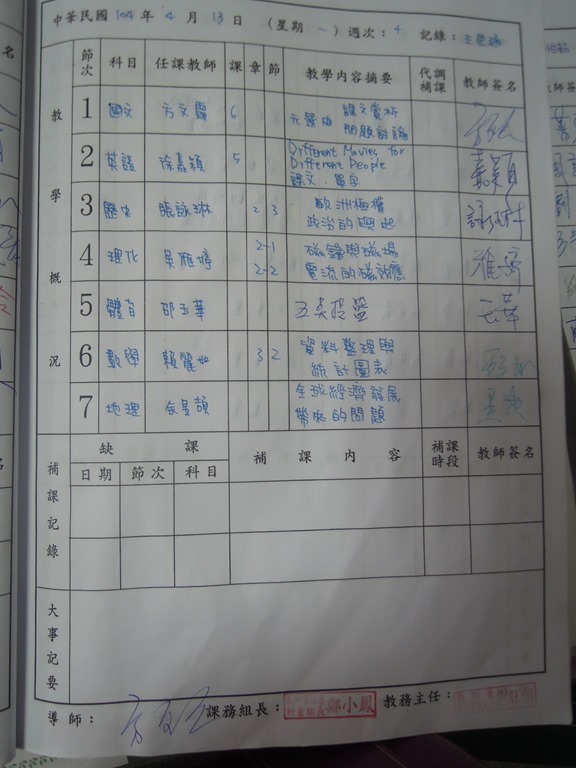 中華民國 104 年 4 月 13 日 (星期 一) 週次: 記錄:
教學概況
節次 科目 任課教師 課 章 節 教學內容摘要 代調補課 教師簽名
1 國文 方文 6 元曲 課文賞析 問題討論
2 英語 徐嘉穎 5 Different Movies for
Different People
課文.單字 嘉穎
3 歷史 張詠琳 2 3 歐洲極權
政治的興起 詠琳
4 理化 吳雁婷 2-1 磁鐵與磁場
2-2 電流的磁效應
5 體育 邵玉華 五美投籃 玉華
6 數學 賴麗 3 2 資料整理與
統計圖表
7 地理 余昱頡 全球經濟發展
帶來的問題
補課記錄
缺課 補課內容 補課時段 教師簽名
日期 節次 科目
大事記要
導師: 課務組長: 鄭小鳳 教務主任: